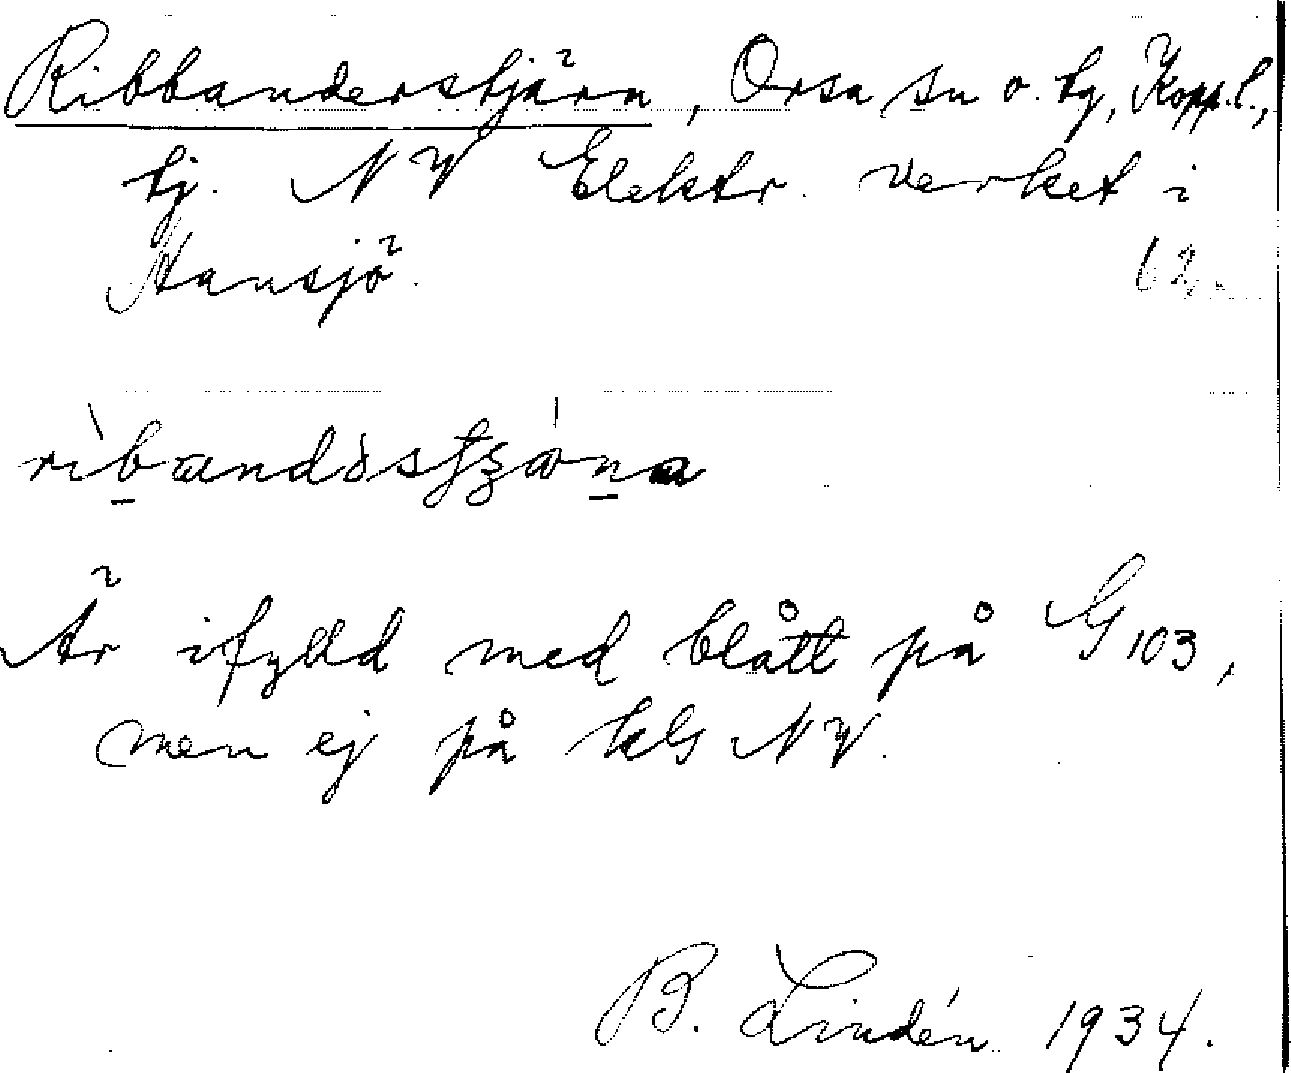 Ribbanderstjärn, Orsa sn o. tg, Kopp.l.,
tj. NV Elektr. verket i
Hansjö. 62.
Är ifylld med blått på G 103,
men ej på kbl NV.
B. Lindén 1934.